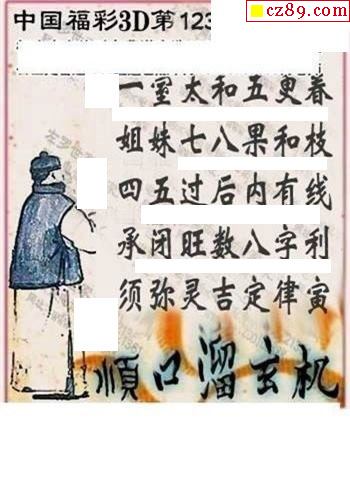 cz89.com
中国福彩3D第123
一室太和五更春
姐妹七八果和枝
四五过后内有线
承闭旺数八字利
须弥灵吉定律寅
顺口溜玄机